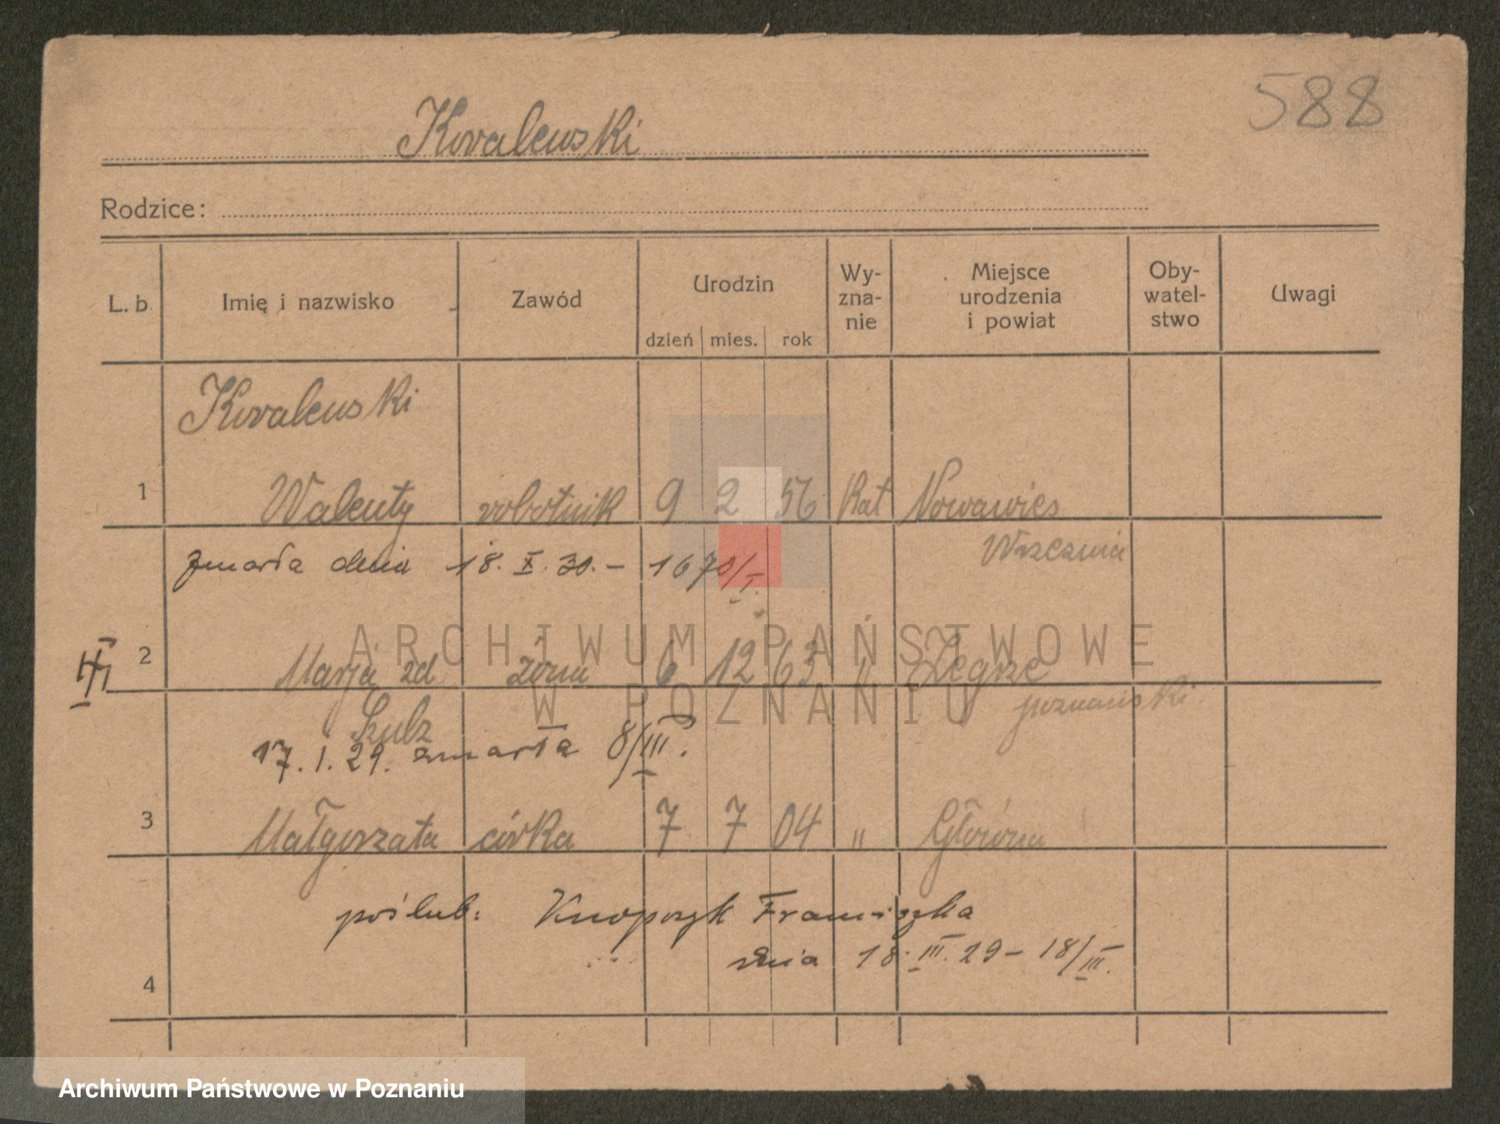 588
Kowalewski
Rodzice:
L. b. Imię i nazwisko Zawód Urodzin dzień mies. rok Wy-zna-nie Miejsce urodzenia i powiat Oby-watel-stwo Uwagi
Kowalewski
1 Walenty robotnik 9 2 56 kat Nowawieś
Września
zmarła dnia 18. X. 30. – 1670/I.
ARCHIWUM PAŃSTWOWE
W POZNANIU
2 Marja zd żona 6 12 63 " Żegrze
Szulz poznański
17. 1. 29. zmarła 8/III.
3 Małgorzata córka 7 7 04 " Główna
poślub: Knopczyk Franciszka
dnia 18. III. 29 – 18/III.
4
Archiwum Państwowe w Poznaniu